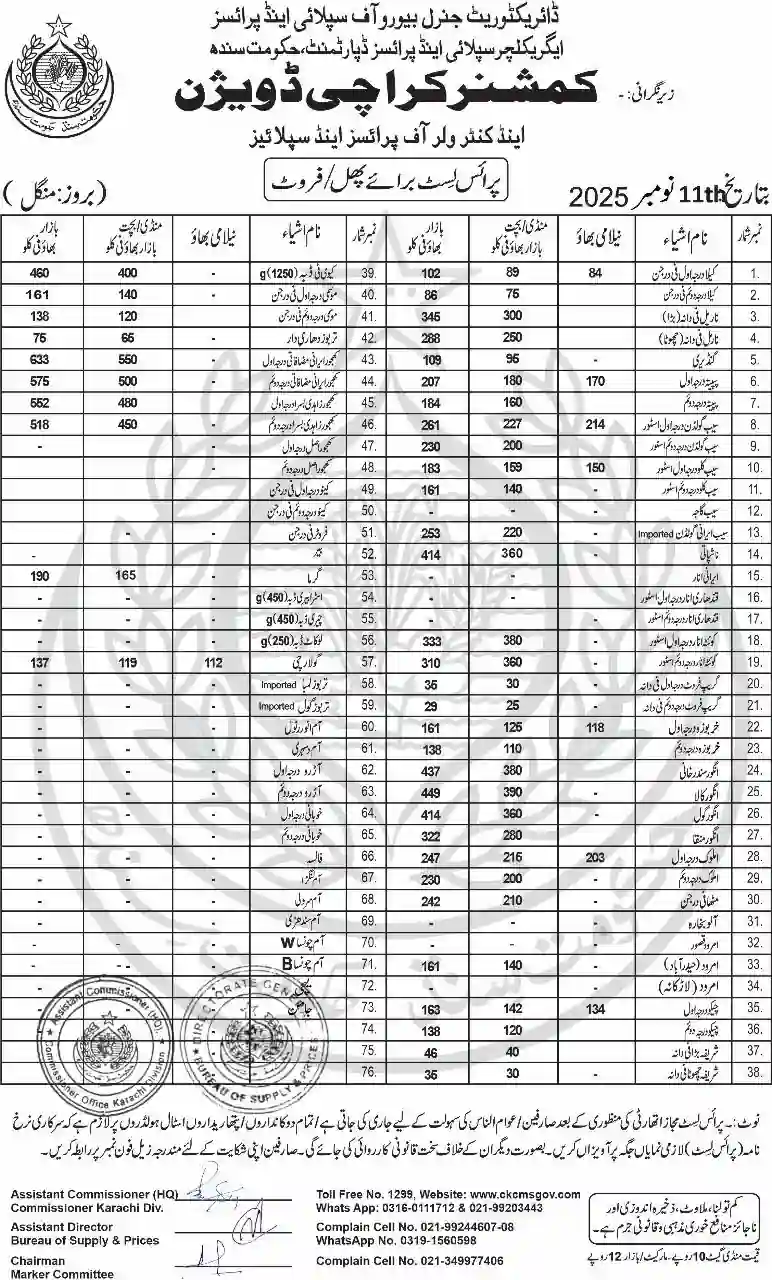 ڈائریکٹوریٹ جنرل بیورو آف سپلائی اینڈ پرائسز
ایگریکلچر سپلائی اینڈ پرائسز ڈپارٹمنٹ، حکومت سندھ
زیر نگرانی: -
کمشنر کراچی ڈویژن
اینڈ کنٹرولر آف پرائسز اینڈ سپلائیز
بتاریخ 11th نومبر 2025
پرائس لسٹ برائے پھل/فروٹ
(بروز: منگل)
نمبر شمار نام اشیاء نیلامی بھاؤ منڈی/بچت بازار بھاؤ فی کلو بازار بھاؤ فی کلو
1. کیلا درجہ اول فی درجن 84 89 102
2. کیلا درجہ دوئم فی درجن 75 86
3. ناریل فی دانہ (بڑا) 300 345
4. ناریل فی دانہ (چھوٹا) 250 288
5. گنڈیری - 95 109
6. پپیتہ درجہ اول 170 180 207
7. پپیتہ درجہ دوئم 160 184
8. سیب گولڈن درجہ اول اسٹور 214 227 261
9. سیب گولڈن درجہ دوئم اسٹور 200 230
10. سیب کلو درجہ اول اسٹور 150 159 183
11. سیب کلو درجہ دوئم اسٹور - 140 161
12. سیب گاجہ -
13. سیب ایرانی گولڈن Imported - 220 253
14. ناشپاتی - 360 414
15. ایرانی انار - - -
16. قندھاری انار درجہ اول اسٹور - -
17. قندھاری انار درجہ دوئم اسٹور - - -
18. کوئٹہ انار درجہ اول اسٹور - 380 333
19. کوئٹہ انار درجہ دوئم اسٹور - 360 310
20. گریپ فروٹ درجہ اول فی دانہ - 30 35
21. گریپ فروٹ درجہ دوئم فی دانہ - 25 29
22. خربوزہ درجہ اول 118 125 161
23. خربوزہ درجہ دوئم 110 138
24. انگور سندرخانی - 380 437
25. انگور کالا - 390 449
26. انگور گول - 360 414
27. انگور منقا - 280 322
28. املوک درجہ اول 203 215 247
29. املوک درجہ دوئم - 200 230
30. مٹھا فی درجن - 210 242
31. آلو بخارہ - - -
32. امرود قصور - - -
33. امرود (حیدرآباد) - 140 161
34. امرود (لاڑکانہ) - - -
35. چیکو درجہ اول 134 142 163
36. چیکو درجہ دوئم 120 138
37. شریفہ بڑا فی دانہ - 40 46
38. شریفہ چھوٹا فی دانہ - 30 35
نمبر شمار نام اشیاء نیلامی بھاؤ منڈی/بچت بازار بھاؤ فی کلو بازار بھاؤ فی کلو
39. کیوی فی ڈبہ (1250)g - 400 460
40. موسمی درجہ اول فی درجن - 140 161
41. موسمی درجہ دوئم فی درجن - 120 138
42. تربوز دھاری دار - 65 75
43. کھجور ایرانی مضافاتی درجہ اول - 550 633
44. کھجور ایرانی مضافاتی درجہ دوئم - 500 575
45. کھجور زاہدی بسرا درجہ اول - 480 552
46. کھجور زاہدی بسرا درجہ دوئم - 450 518
47. کھجور اصل درجہ اول - - -
48. کھجور اصل درجہ دوئم -
49. کینو درجہ اول فی درجن
50. کینو درجہ دوئم فی درجن
51. فروٹر فی درجن - - -
52. بیر - -
53. گرما - 165 190
54. اسٹرابیری ڈبہ (450)g
55. چیری ڈبہ (450)g
56. لوکاٹ ڈبہ (250)g
57. گولارچی 112 119 137
58. تربوز لمبا Imported - - -
59. تربوز گول Imported - - -
60. آم انور رٹول - - -
61. آم دسہری - - -
62. آڑو درجہ اول - - -
63. آڑو درجہ دوئم - - -
64. خوبانی درجہ اول - - -
65. خوبانی درجہ دوئم - - -
66. فالسہ - - -
67. آم لنگڑا - - -
68. آم سرولی - - -
69. آم سندھڑی -
70. آم چونسا W - - -
71. آم چونسا B - - -
72. لیچی
73. جامن
74.
75.
76.
Assistant Commissioner (HQ).
Commissioner Office Karachi Division
DIRECTORATE GENERAL
BUREAU OF SUPPLY & PRICES
نوٹ:۔ پرائس لسٹ مجاز اتھارٹی کی منظوری کے بعد صارفین/عوام الناس کی سہولت کے لیے جاری کی جاتی ہے/تمام دوکانداروں/پتھاریداروں اسٹال ہولڈروں پر لازم ہے کہ سرکاری نرخ
نامہ (پرائس لسٹ) لازمی نمایاں جگہ پر آویزاں کریں۔ بصورت دیگر ان کے خلاف سخت قانونی کارروائی کی جائے گی۔ صارفین اپنی شکایت کے لئے مندرجہ زیل فون نمبر پر رابطہ کریں۔
Assistant Commissioner (HQ)
Commissioner Karachi Div.
Assistant Director
Bureau of Supply & Prices
Chairman
Marker Committee
Toll Free No. 1299, Website: www.ckcmsgov.com
Whats App: 0316-0111712 & 021-99203443
Complain Cell No. 021-99244607-08
WhatsApp No. 0319-1560598
Complain Cell No. 021-349977406
کم تولنا، ملاوٹ، ذخیرہ اندوزی اور
ناجائز منافع خوری مذہبی و قانونی جرم ہے۔
قیمت منڈی گیٹ 10 روپے، مارکیٹ/بازار 12 روپے